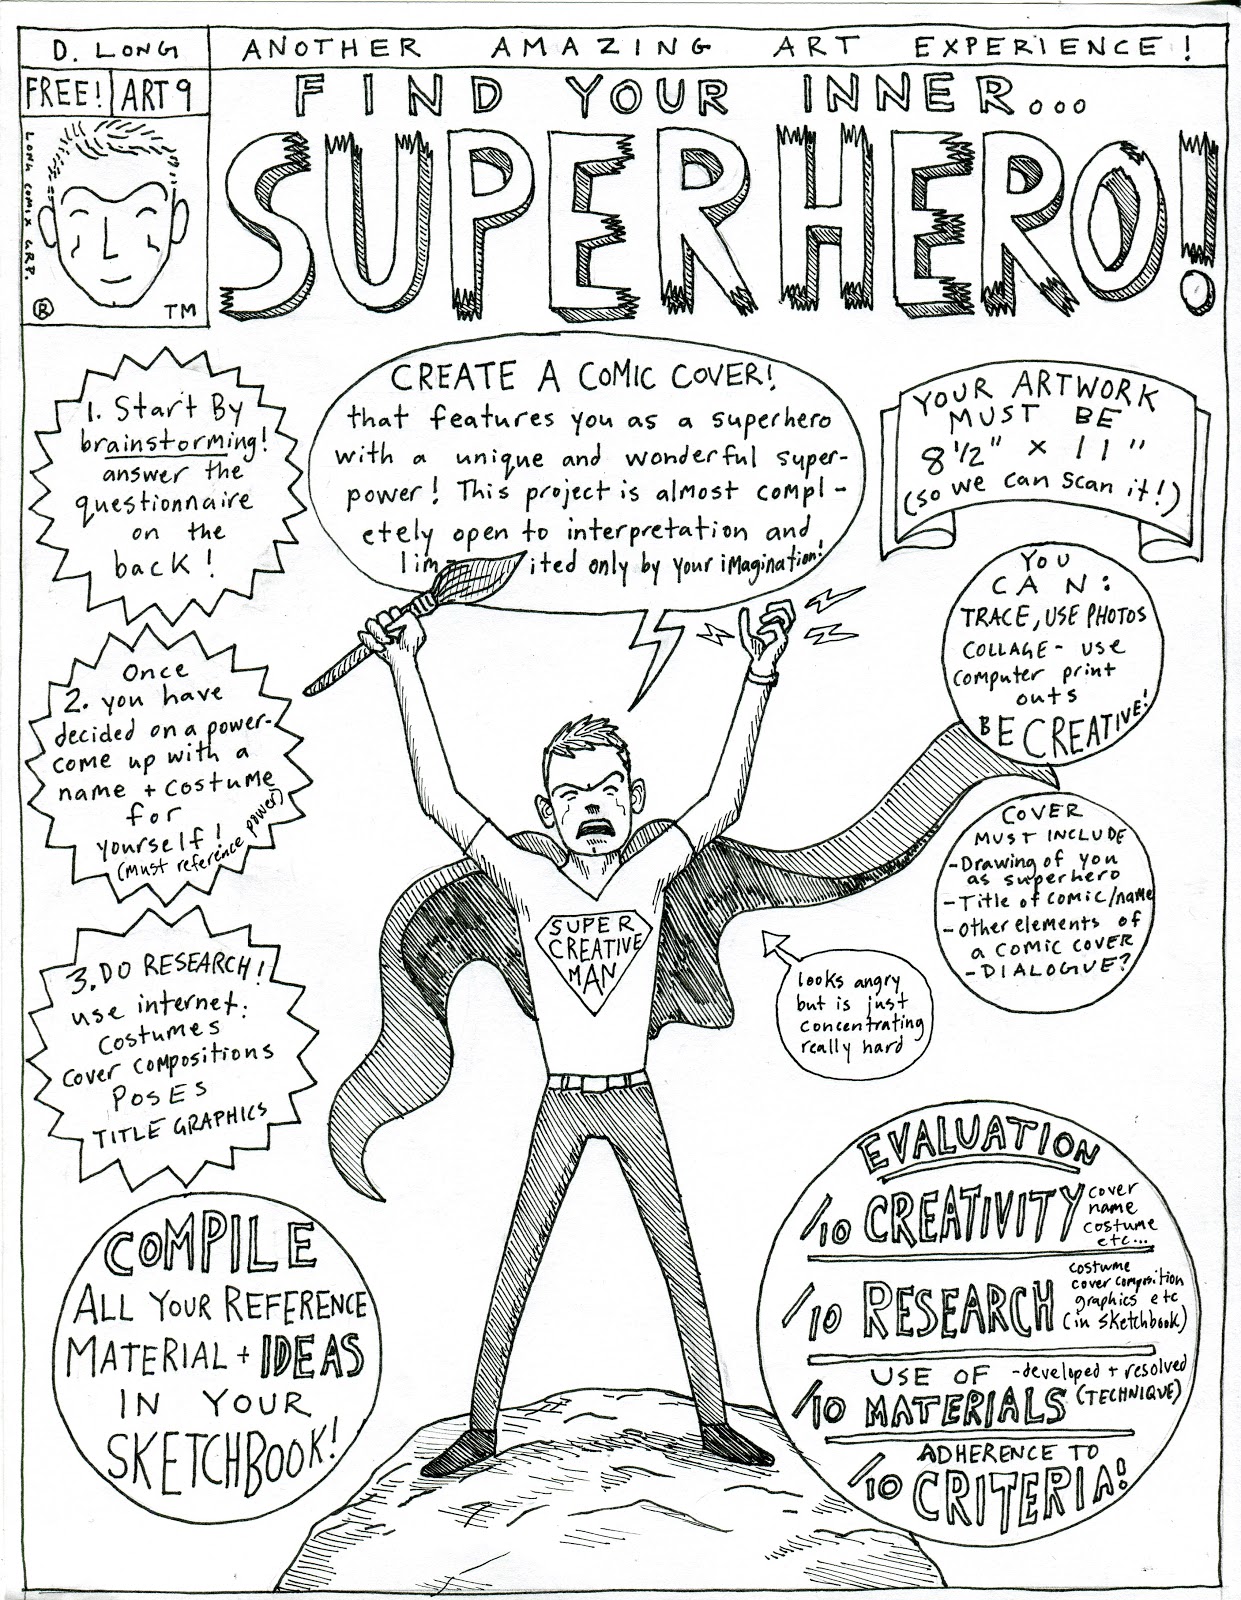 D. LONG
ANOTHER AMAZING ART EXPERIENCE!
FREE! ART 9
FIND YOUR INNER...
SUPERHERO!
LONG COMIX CORP.
® TM
1. Start By
brainstorming!
answer the
questionnaire
on the
back!
CREATE A COMIC COVER!
that features you as a superhero
with a unique and wonderful super-
power! This project is almost compl-
etely open to interpretation and
lim ited only by your imagination!
YOUR ARTWORK
MUST BE
8 1/2" x 11"
(so we can scan it!)
YOU
CAN:
TRACE, USE PHOTOS
COLLAGE - use
computer print
outs
BE CREATIVE!
Once
2. you have
decided on a power-
come up with a
name + costume
for
yourself!
(must reference power)
COVER
MUST INCLUDE
-Drawing of you
as superhero
-Title of comic/name
-Other elements of
a comic cover
-DIALOGUE?
SUPER
CREATIVE
MAN
3. DO RESEARCH!
use internet:
costumes
cover compositions
POSES
TITLE GRAPHICS
looks angry
but is just
concentrating
really hard
COMPILE
ALL YOUR REFERENCE
MATERIAL + IDEAS
IN YOUR
SKETCHBOOK!
EVALUATION
/10 CREATIVITY cover
name
costume
etc...
/10 RESEARCH costume
cover composition
graphics etc
(in sketchbook)
USE OF -developed + resolved
/10 MATERIALS (TECHNIQUE)
ADHERENCE TO
/10 CRITERIA!